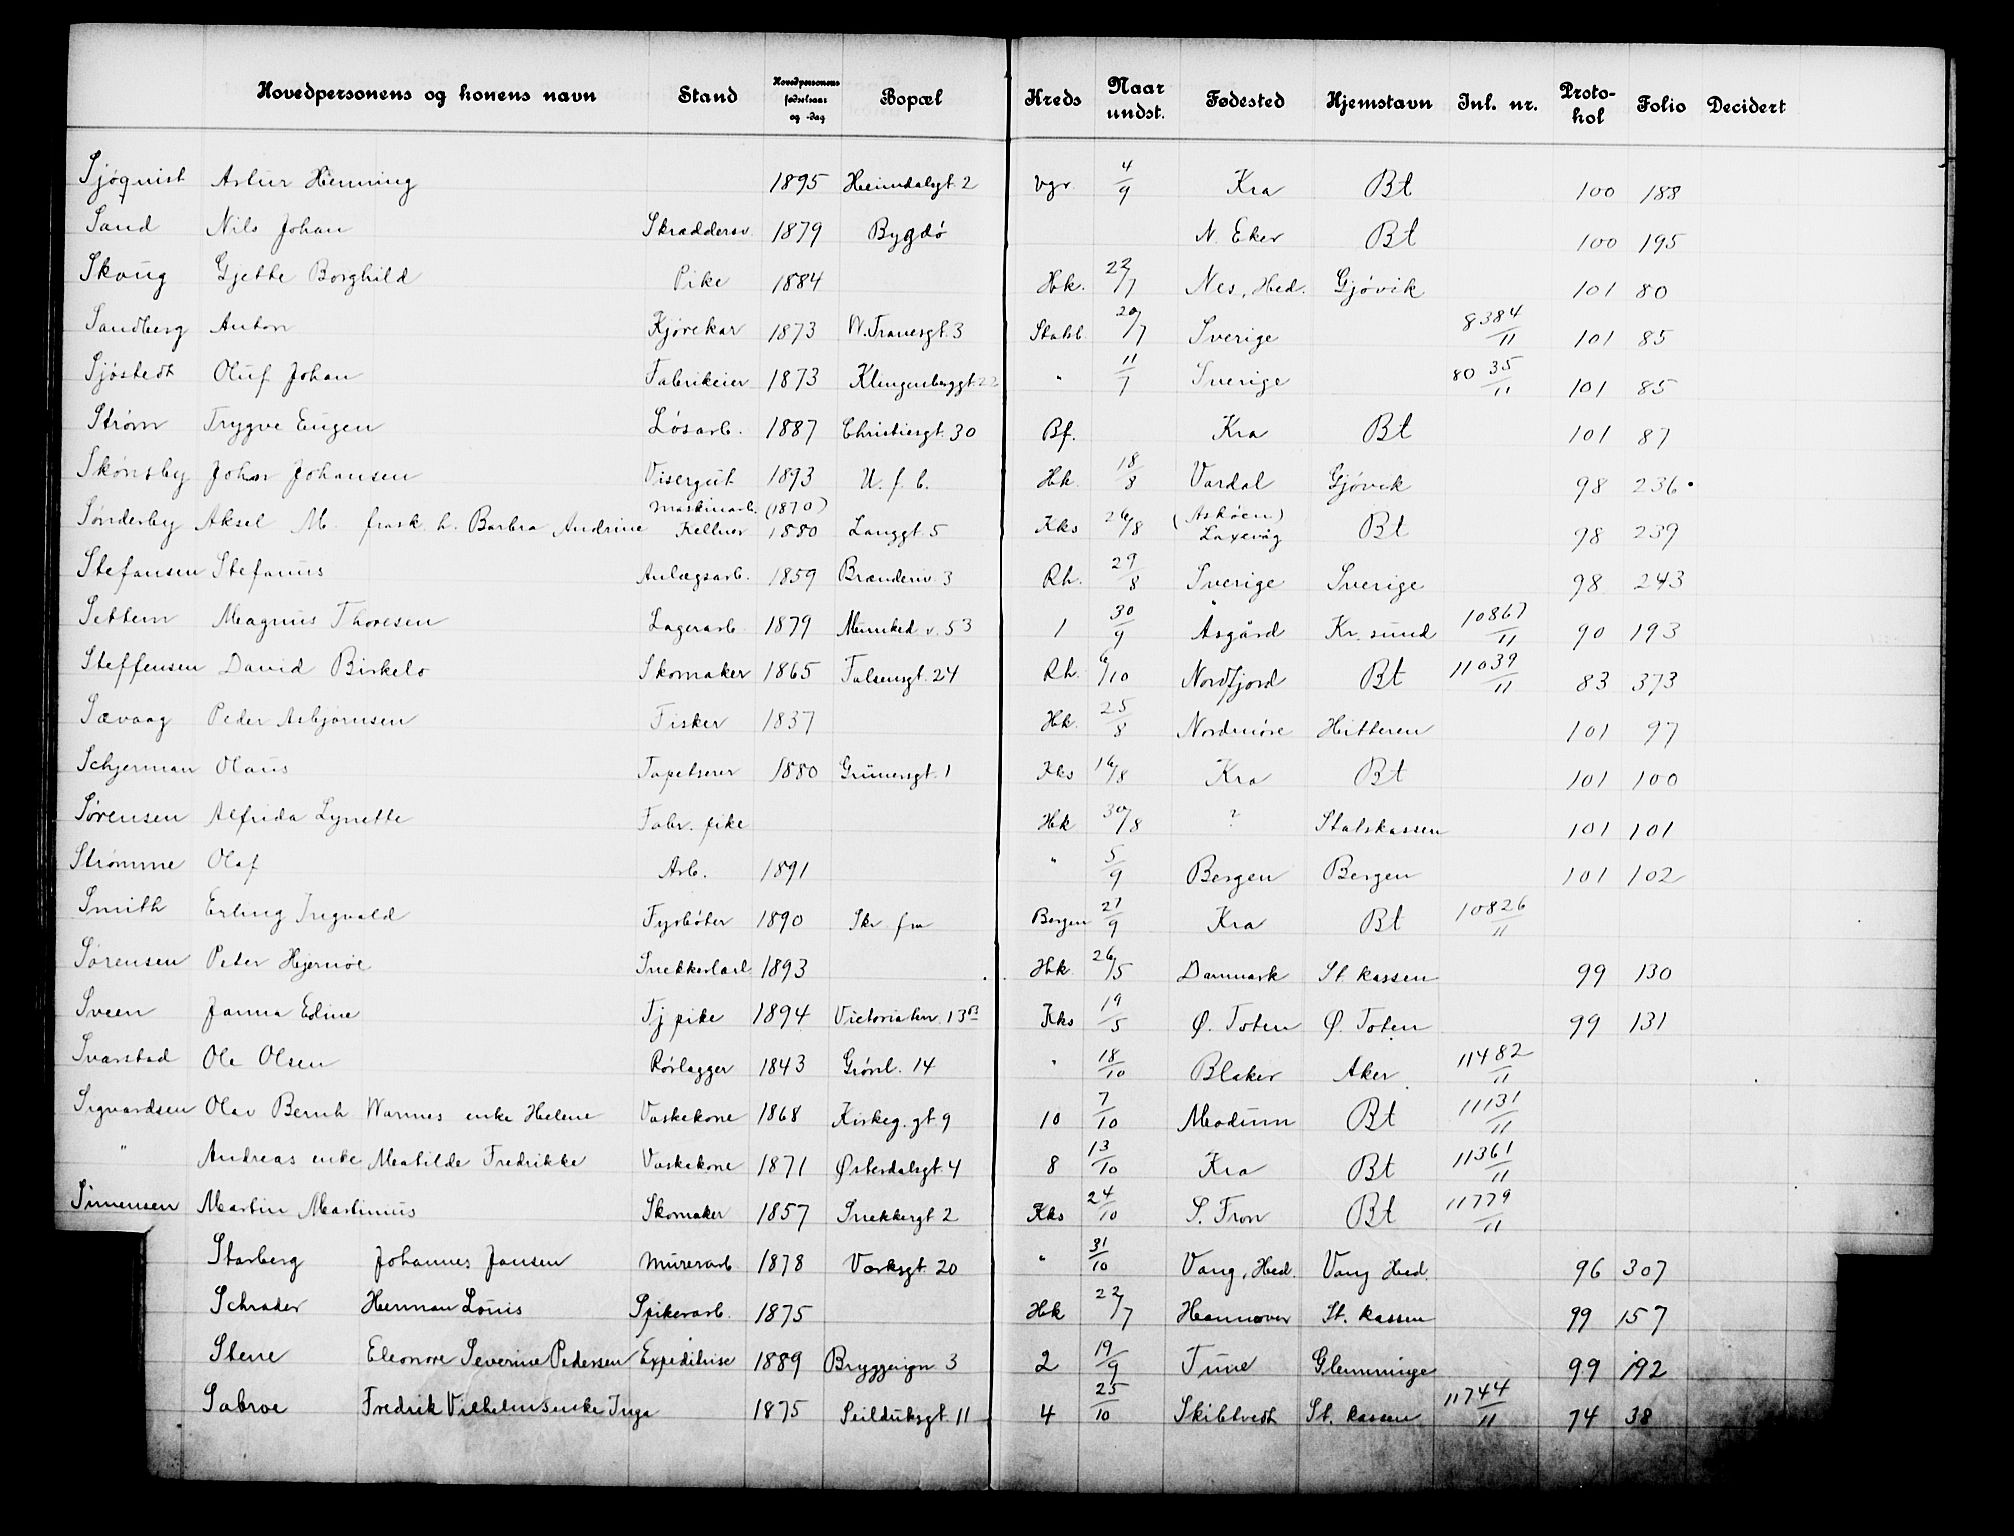 Hovedpersonens og konens navn Stand Hovedpersonens fødselsaar og -dag Bopæl Kreds Naar undst. Fødested Hjemstavn Inl. nr. Protokol Folio Decidert
Sjøquist Artur Henning 1895 Heimdalsgt. 2 Vgr. 4/9 Kra Bt 100 188
Sand Nils Johan Skræddersv. 1879 Bygdö N. Eker Bt 100 195
Skoug Gjethe Borghild Pike 1884 Hk. 22/7 Nes, Hed. Gjøvik 101 80
Sandberg Anton Kjørekar 1873 W. Tranesgt. 3 Statsb. 20/7 Sverige 8384/11 101 85
Sjøstedt Oluf Johan Fabrikeier 1873 Klingenberggt. 22 " 11/7 Sverige 8035/11 101 85
Strøm Trygve Eugen Løsarb. 1887 Christiesgt. 30 Bf. Kra Bt 101 87
Skønsby Johan Johansen Visergut 1893 U. f. b. Hk. 18/8 Vardal Gjøvik 98 236
Sønderby Aksel M. frask. h. Barbra Andrine Maskinarb. Kellner (1870) 1880 Langgt. 5 Kks 26/8 (Askøen) Laxevåg Bt 98 239
Stefansen Stefanus Anlægsarb. 1859 Brænderiv. 3 Rh. 29/8 Sverige Sverige 98 243
Settem Magnus Thoresen Lagerarb. 1879 Munked. v. 53 1 30/9 Åsgård Kr. sund 10867/11 90 193
Steffensen David Birkelo Skomaker 1865 Falsensgt. 24 Rh. 6/10 Nordfjord Bt 11039/11 83 373
Sævaag Peder Asbjørnsen Fisker 1837 Hk. 25/8 Nordmøre Hitteren 101 97
Schjerman Olaus Tapetserer 1880 Grünersgt. 1 Kks 16/8 Kra Bt 101 100
Sørensen Alfrida Lynette Fabr. pike Hk 30/8 ? Statskassen 101 101
Strømme Olaf Arb. 1891 " 5/9 Bergen Bergen 101 102
Smith Erling Ingvald Fyrbøter 1890 Skr fra Bergen 21/9 Kra Bt 10826/11
Sørensen Peter Hjernøe Snekkerlærl. 1893 Hk 26/5 Danmark St. kassen 99 130
Sveen Janna Edine Tj pike 1894 Victoria ter. 13 Kks 19/5 Ø. Toten Ø. Toten 99 131
Svarstad Ole Olsen Rørlægger 1843 Grønl. 14 " 18/10 Blaker Aker 11482/11
Sigvardsen Olav Bernh Warnes enke Helene Vaskekone 1868 Kirkeg. gt 9 10 7/10 Modum Bt 11131/11
" Andreas enke Matilde Fredrikke Vaskekone 1871 Østerdalsgt. 4 8 13/10 Kra Bt 11361/11
Simensen Martin Martinius Skomaker 1857 Snekkergt 2 Kks 24/10 S. Fron Bt 11779/11
Starberg Johannes Jansen Murerarb 1878 Verksgt. 20 " 31/10 Vang, Hed. Vang Hed. 96 307
Schrader Herman Louis Spikerarb. 1875 Hk 22/7 Hannover St. kassen 99 157
Stene Eleonore Severine Pedersen Expeditrise 1889 Bryggerign 3 2 19/9 Tune Glemminge 99 192
Sabroe Fredrik Vilhelms enke Inga 1875 Seilduksgt. 11 4 25/10 Skibtvedt St. kassen 11744/11 74 38